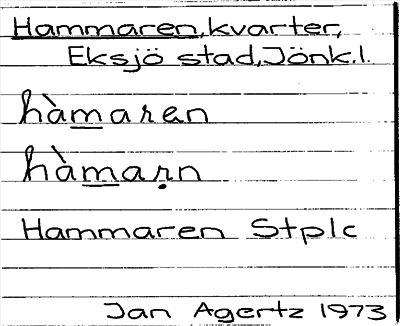 Hammaren, kvarter,
Eksjö stad, Jönk.l.
hàm̲aren
hàm̲aṛn
Hammaren Stplc
Jan Agertz 1973